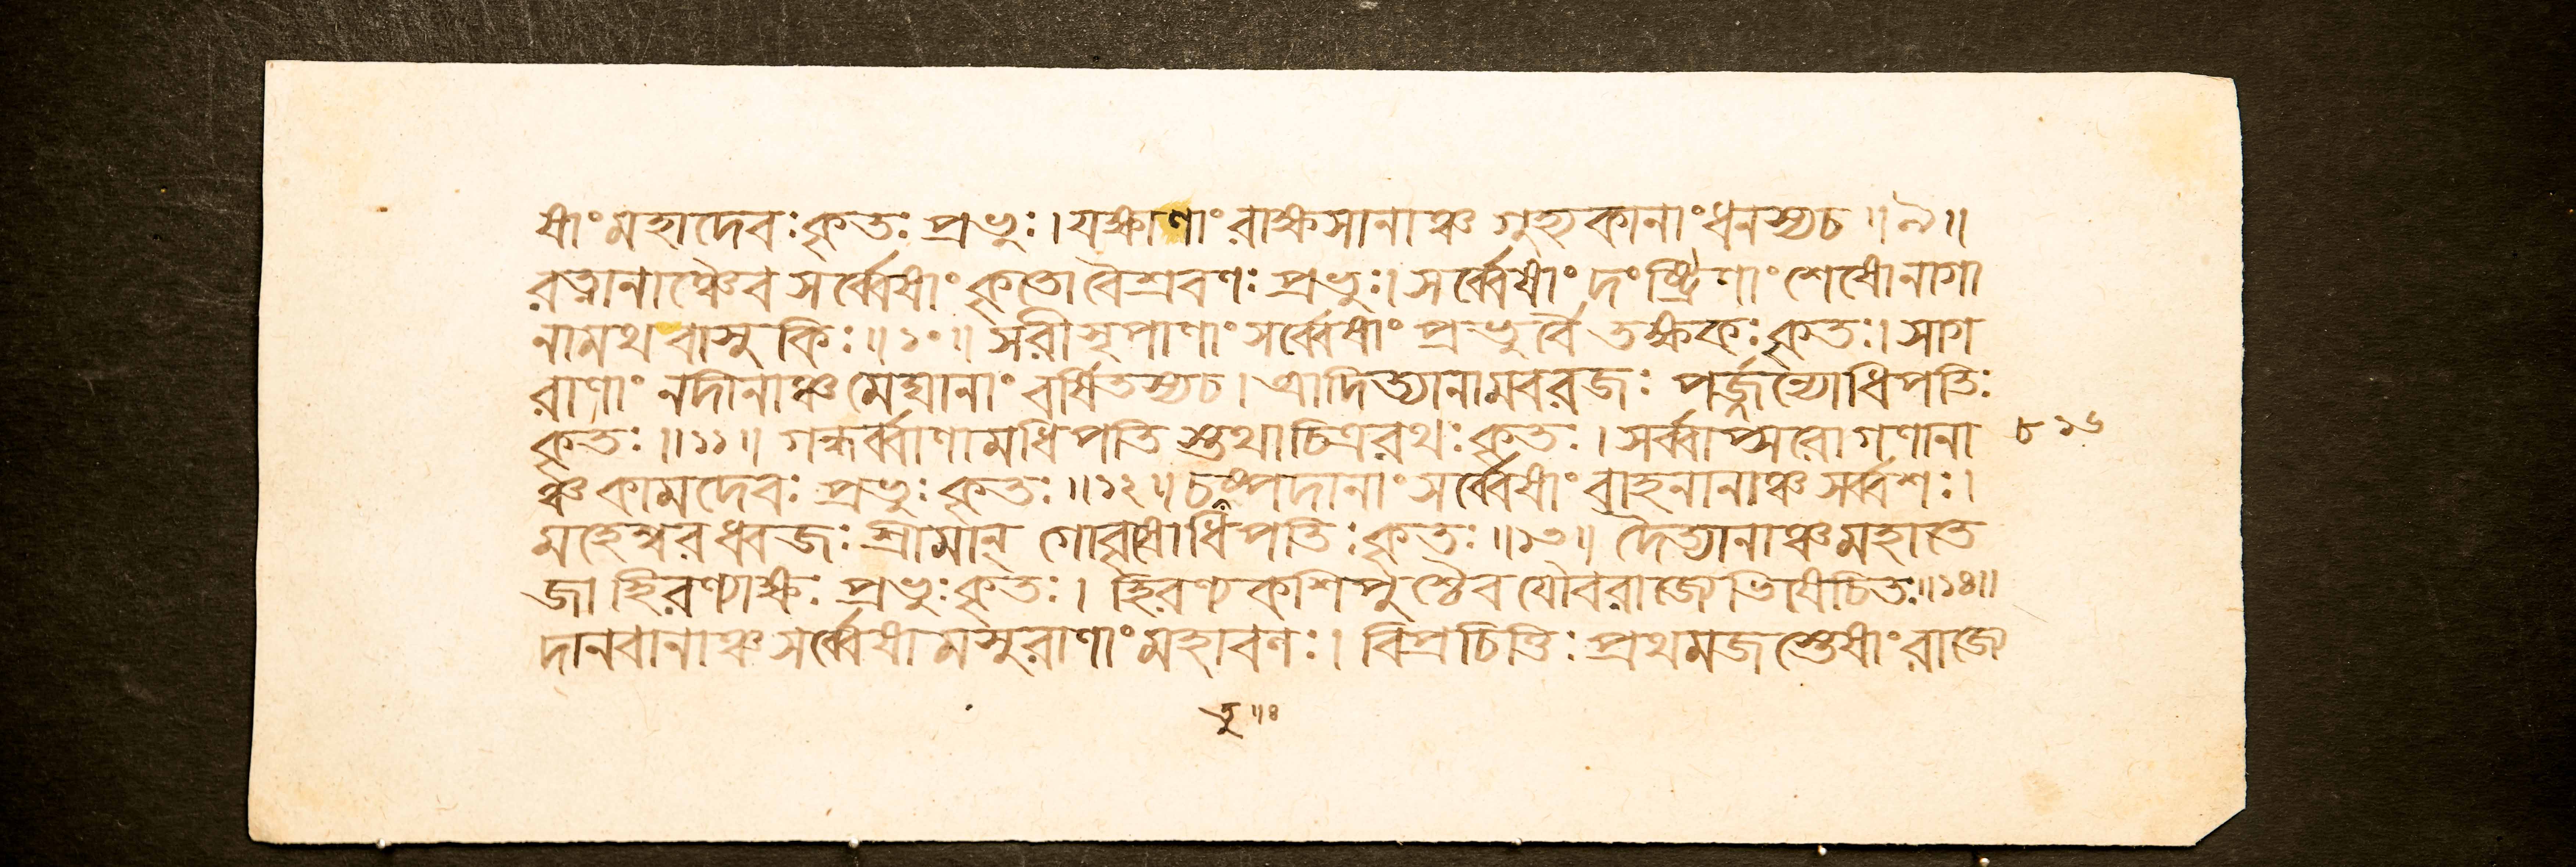 ষাং মহাদেবঃ কৃতঃ প্রভুঃ । যক্ষাণাং রাক্ষসানাঞ্চ গুহ্যকানাং ধনস্যচ ॥ ৯ ॥
রত্নানাঞ্চৈব সর্ব্বেষাং কৃতো বৈশ্রবণঃ প্রভুঃ । সর্ব্বেষাং দংষ্ট্রিণাং শেষোনাগা
নামথ বাসুকিঃ ॥ ১০ ॥ সরীসৃপাণাং সর্ব্বেষাং প্রভুর্বৈ তক্ষকঃ কৃতঃ । সাগ
রাণাং নদীনাঞ্চ মেঘানাং বর্ষিতস্যচ । আদিত্যানামবরজঃ পর্জ্জন্যোধিপতিঃ
কৃতঃ ॥ ১১ ॥ গন্ধর্ব্বাণামধিপতি স্তথা চিত্ররথঃ কৃতঃ । সর্ব্বাপ্সরোগণানা
ঞ্চ কামদেবঃ প্রভুঃ কৃতঃ ॥ ১২ ॥ চতুষ্পদানাং সর্ব্বেষাং বাহনানাঞ্চ সর্ব্বশঃ ।
মহেশ্বরধ্বজঃ শ্রীমান্ গোবৃষোধিপতিঃ কৃতঃ ॥ ১৩ ॥ দৈত্যানাঞ্চ মহাতে
জা হিরণ্যাক্ষঃ প্রভুঃ কৃতঃ । হিরণ্যকশিপুশ্চৈব যৌবরাজ্যেভিষেচিতঃ ॥ ১৪ ॥
দানবানাঞ্চ সর্ব্বেষামসুরাণাং মহাবণঃ । বিপ্রচিত্তিঃ প্রথমজস্তেষাং রাজ্যে
৮১৬